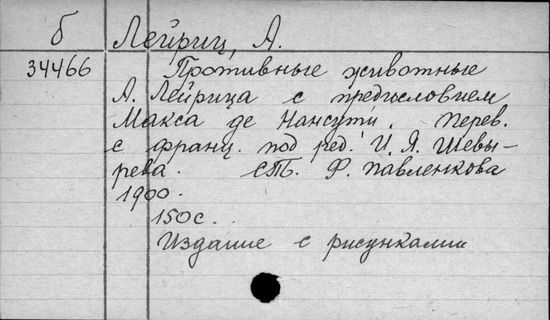 б Лейриц, А.
34466 Противные животные
А. Лейрица с предисловием
Макса де Нансути. Перев.
с франц. под ред. И. Я. Шевы-
рева. СПб. Ф. Павленкова
1900.
150с.
Издание с рисунками